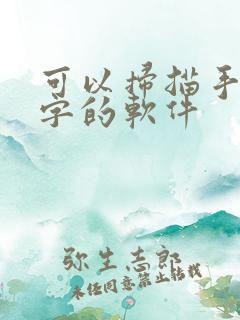 可以掃描手
字的軟件
弥生志郎
未任同意禁止转载